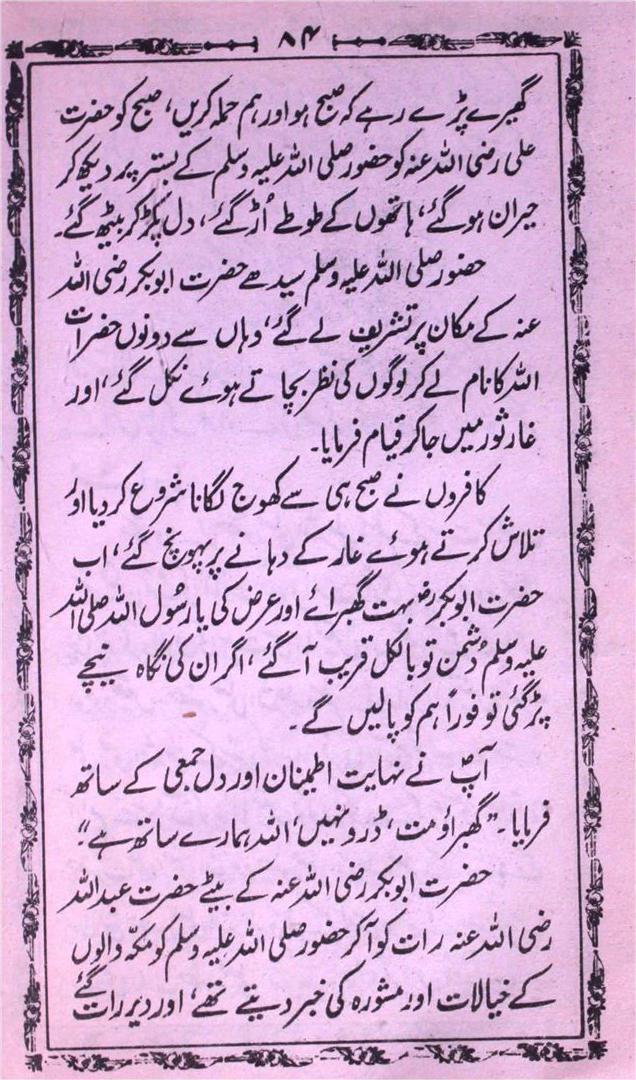 ۸۴
گھیرے پڑے رہے کہ صبح ہو اور ہم حملہ کریں، صبح کو حضرت
علی رضی اللہ عنہ کو حضور صلی اللہ علیہ وسلم کے بستر پر دیکھ کر
حیران ہو گئے، ہاتھوں کے طوطے اُڑ گئے، دل پکڑ کر بیٹھ گئے۔
حضور صلی اللہ علیہ وسلم سیدھے حضرت ابوبکر رضی اللہ
عنہ کے مکان پر تشریف لے گئے، وہاں سے دونوں حضرات
اللہ کا نام لے کر لوگوں کی نظر بچاتے ہوئے نکل گئے، اور
غار ثور میں جا کر قیام فرمایا۔
کافروں نے صبح ہی سے کھوج لگانا شروع کر دیا اؤ
تلاش کرتے ہوئے غار کے دہانے پر پہونچ گئے، اب
حضرت ابوبکرؓ بہت گھبرائے اور عرض کی یا رسُول اللہ صلی اللہ
علیہ وسلم دُشمن تو بالکل قریب آ گئے، اگر ان کی نگاہ نیچے
پڑ گئی تو فوراً ہم کو پا لیں گے۔
آپؐ نے نہایت اطمینان اور دل جمعی کے ساتھ
فرمایا۔ "گھبراؤ مت، ڈرو نہیں، اللہ ہمارے ساتھ ہے"۔
حضرت ابوبکر رضی اللہ عنہ کے بیٹے حضرت عبداللہ
رضی اللہ عنہ رات کو آ کر حضور صلی اللہ علیہ وسلم کو مکّہ والوں
کے خیالات اور مشورہ کی خبر دیتے تھے، اور دیر رات گئے